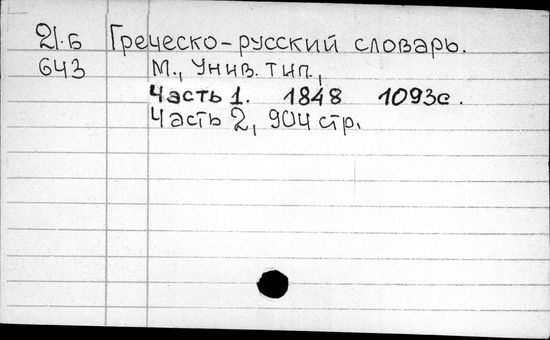 21.Б Греческо-русский словарь.
643 М., Унив. тип.,
Часть 1. 1848 1093с.
Часть 2, 904 стр.